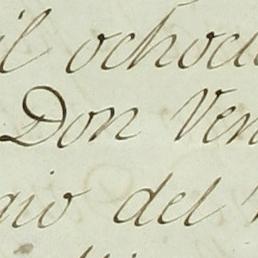 il ochoci
Don Ven
gio del